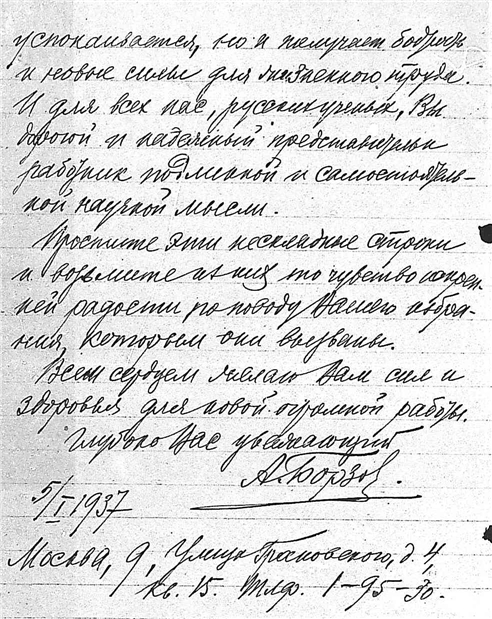 успокаивается, но и получает бодрость
и новые силы для жизненного труда.
И для всех нас, русских ученых, Вы
дорогой и надежный представитель
работник подлинной и самостоятель-
ной научной мысли.
Простите эти нескладные строки
и возьмите из них то чувство искрен-
ней радости по поводу Вашего избра-
ния, которым они вызваны.
Всем сердцем желаю Вам сил и
здоровья для новой огромной работы.
Глубоко Вас уважающий
А. Борзов.
5/I 1937
Москва, 9, Улица Грановского, д. 4,
кв. 15. Тлф. 1-95-30.